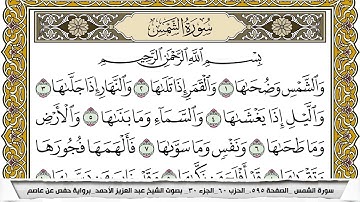 سُورَةُ الشَّمْسِ
بِسْمِ ٱللَّهِ ٱلرَّحْمَٰنِ ٱلرَّحِيمِ
وَٱلشَّمْسِ وَضُحَىٰهَا ١ وَٱلْقَمَرِ إِذَا تَلَىٰهَا ٢ وَٱلنَّهَارِ إِذَا جَلَّىٰهَا ٣
وَٱلَّيْلِ إِذَا يَغْشَىٰهَا ٤ وَٱلسَّمَآءِ وَمَا بَنَىٰهَا ٥ وَٱلْأَرْضِ
وَمَا طَحَىٰهَا ٦ وَنَفْسٍ وَمَا سَوَّىٰهَا ٧ فَأَلْهَمَهَا فُجُورَهَا
سورة الشمس _الصفحة ٥٩٥_ الحزب ٦٠_الجزء ٣٠_ بصوت الشيخ عبد العزيز الأحمد_برواية حفص عن عاصم